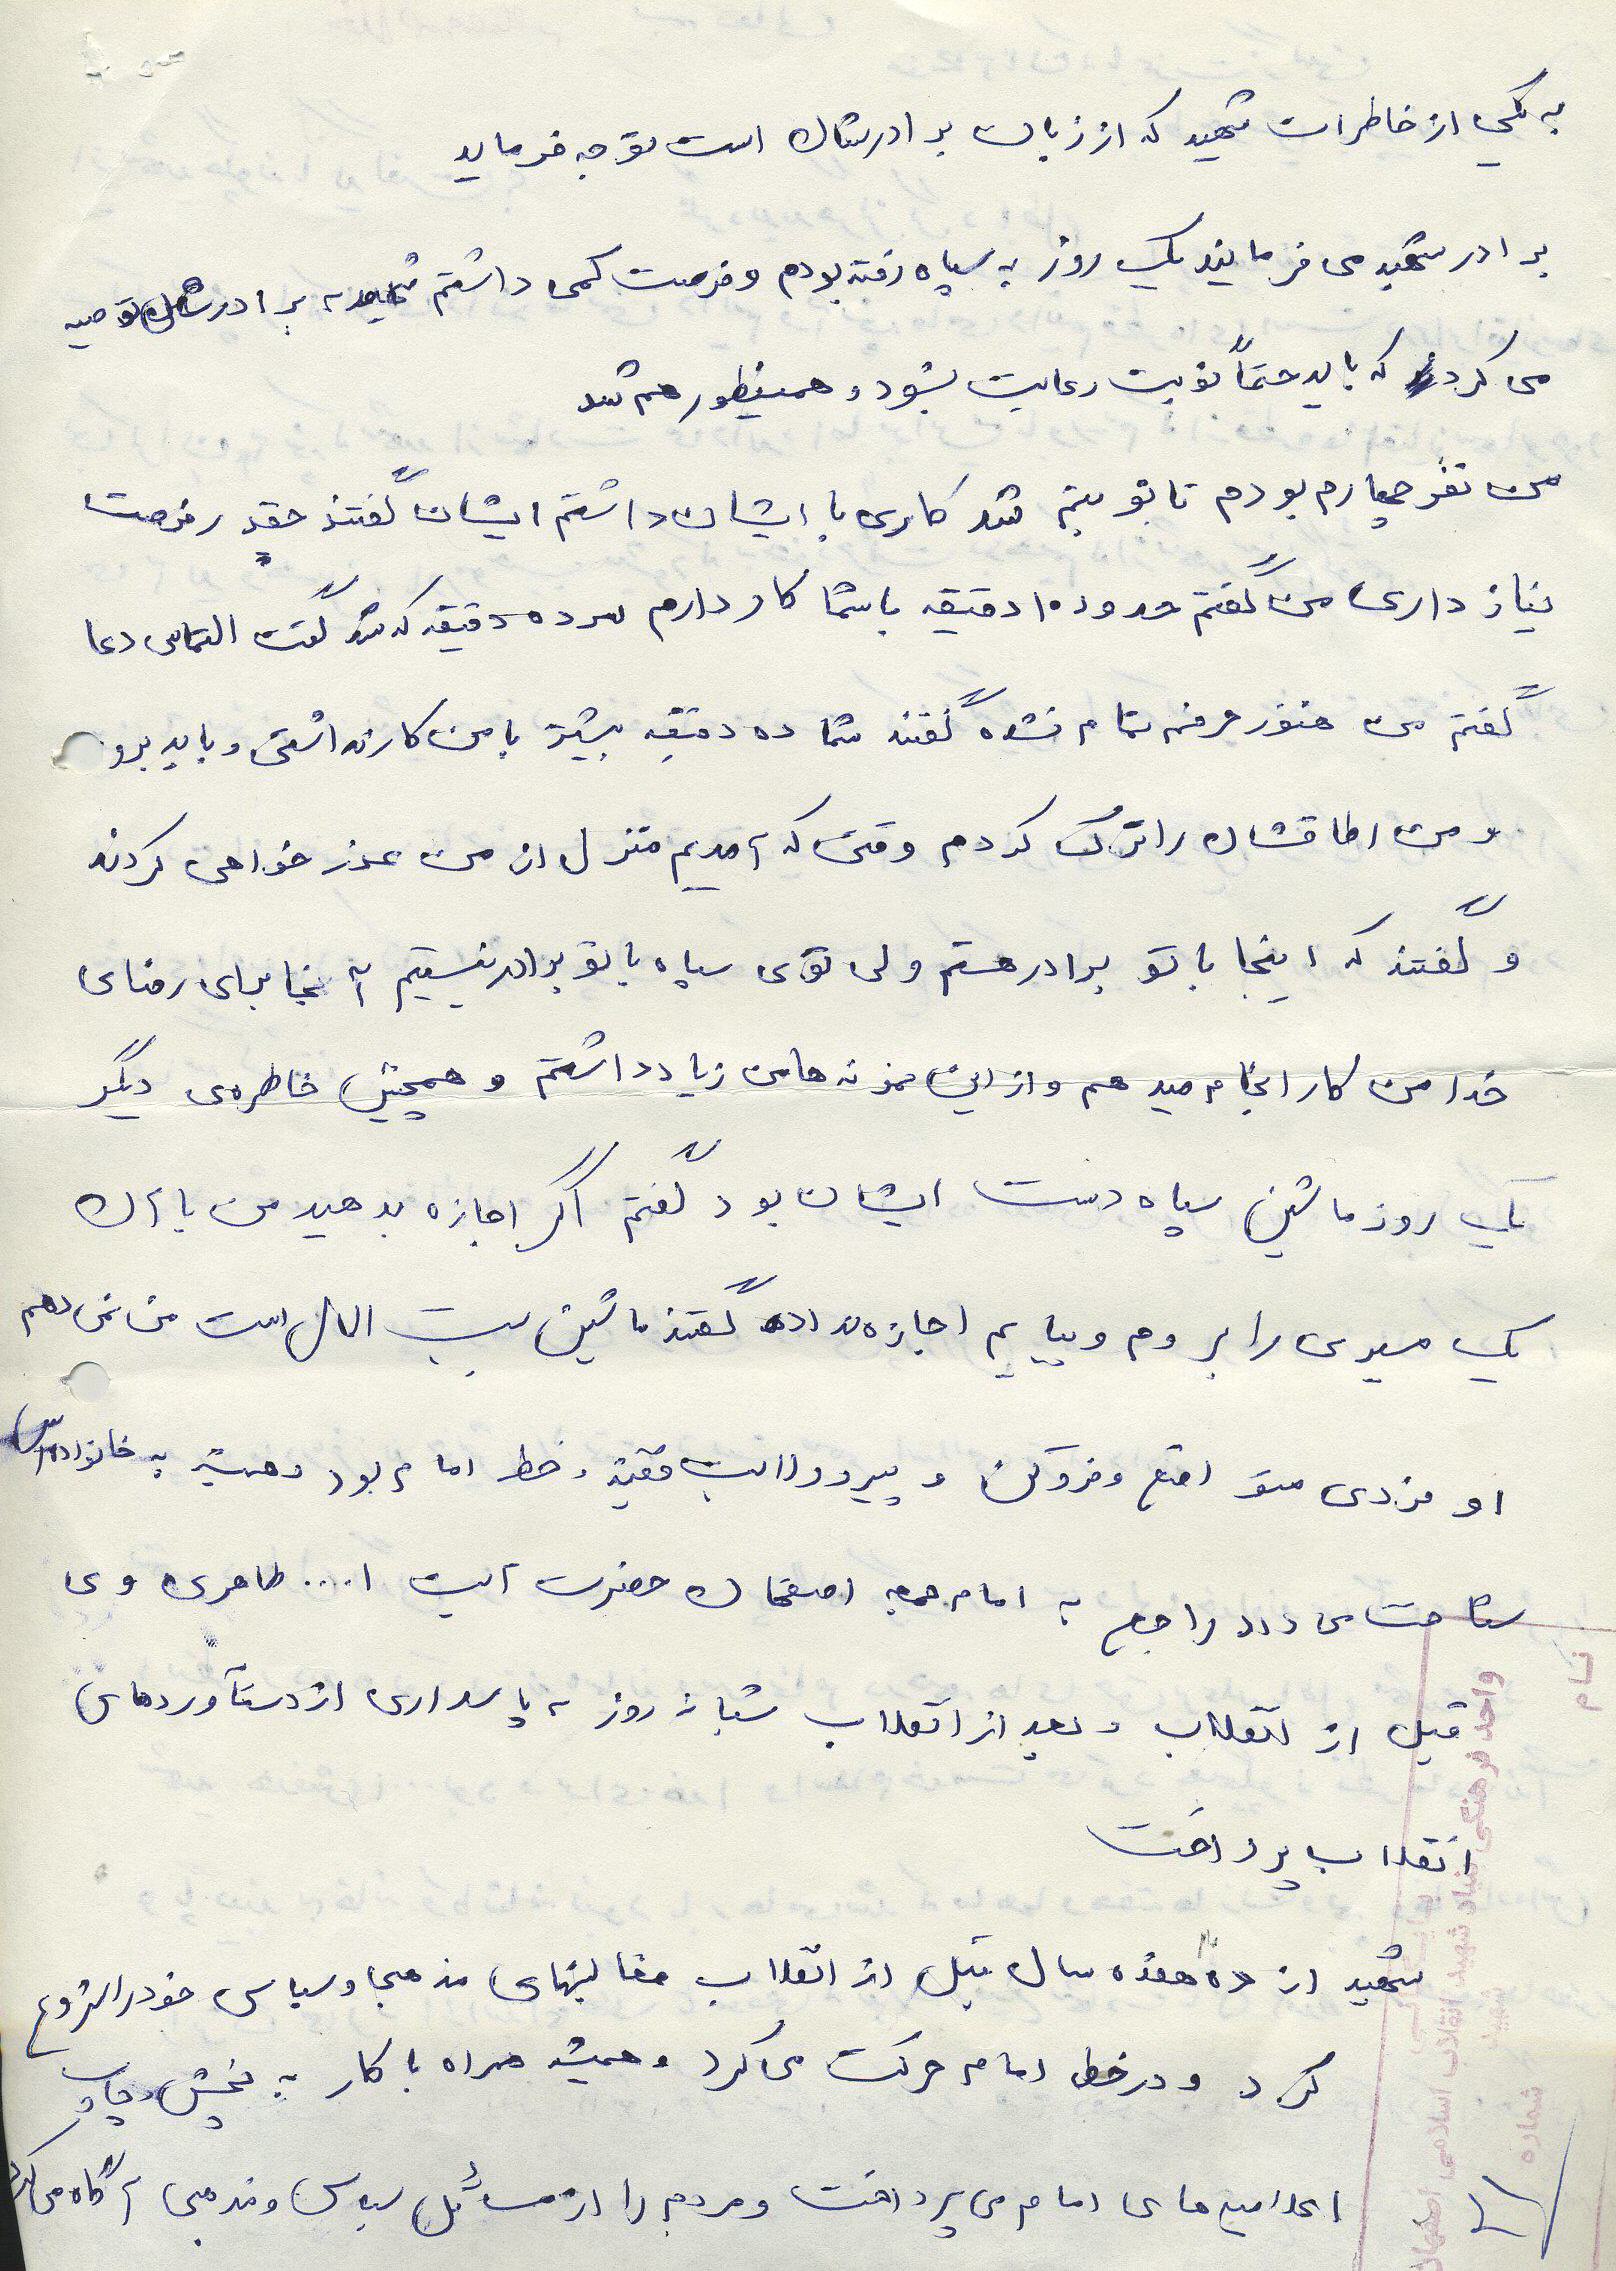 به یکی از خاطرات شهید که از زبان برادرشان است توجه فرماید
برادر شهید می فرمایند یک روز به سپاه رفته بودم و فرصت کمی داشتم شهید به برادرشان توصیه
می کرد که باید حتماً نوبت رعایت بشود و همینطور هم شد
من نفر چهارم بودم تا نوبتم شد کاری با ایشان داشتم ایشان گفتند چقدر فرصت
نیاز داری من گفتم حدود ۱۰ دقیقه باشما کار دارم سر ده دقیقه که شد گفت التماس دعا
گفتم من هنوز حرفم تمام نشده گفتند شما ده دقیقه بیشتر با من کار نداشتی و باید بروی
و من اطاقشان را ترک کردم وقتی که آمدیم منزل از من عذر خواهی کردند
و گفتند که اینجا با تو برادر هستم ولی توی سپاه با تو برادر نیستیم آنجا برای رضای
خدا من کار انجام میدهم و از این نمونه ها من زیاد داشتم و همچنین خاطره ی دیگر
یک روز ماشین سپاه دست ایشان بود گفتم اگر اجازه بدهید من با آن
یک مسیری را بروم و بیایم اجازه نداد گفتند ماشین بیت المال است من نمی دهم
او فردی متواضع و فروتن و پیرو ولایت فقیه و خط امام بود و همیشه به خانواده اش
سفارش می کرد راجع به امام جمعه اصفهان حضرت آیت ا.... طاهری وی
قبل از انقلاب و بعد از انقلاب شبانه روز به پاسداری از دستآوردهای
انقلاب پرداخت
شهید از ده هفده سال قبل از انقلاب فعالیتهای مذهبی و سیاسی خود را شروع
کرد و در خط امام حرکت می کرد و همیشه همراه با کار به پخش و چاپ
اعلامیه های امام می پرداخت و مردم را از مسائل سیاسی و مذهبی آگاه می کرد
واحد فرهنگی بنیاد شهید انقلاب اسلامی اصفهان
نام
شهید
شماره